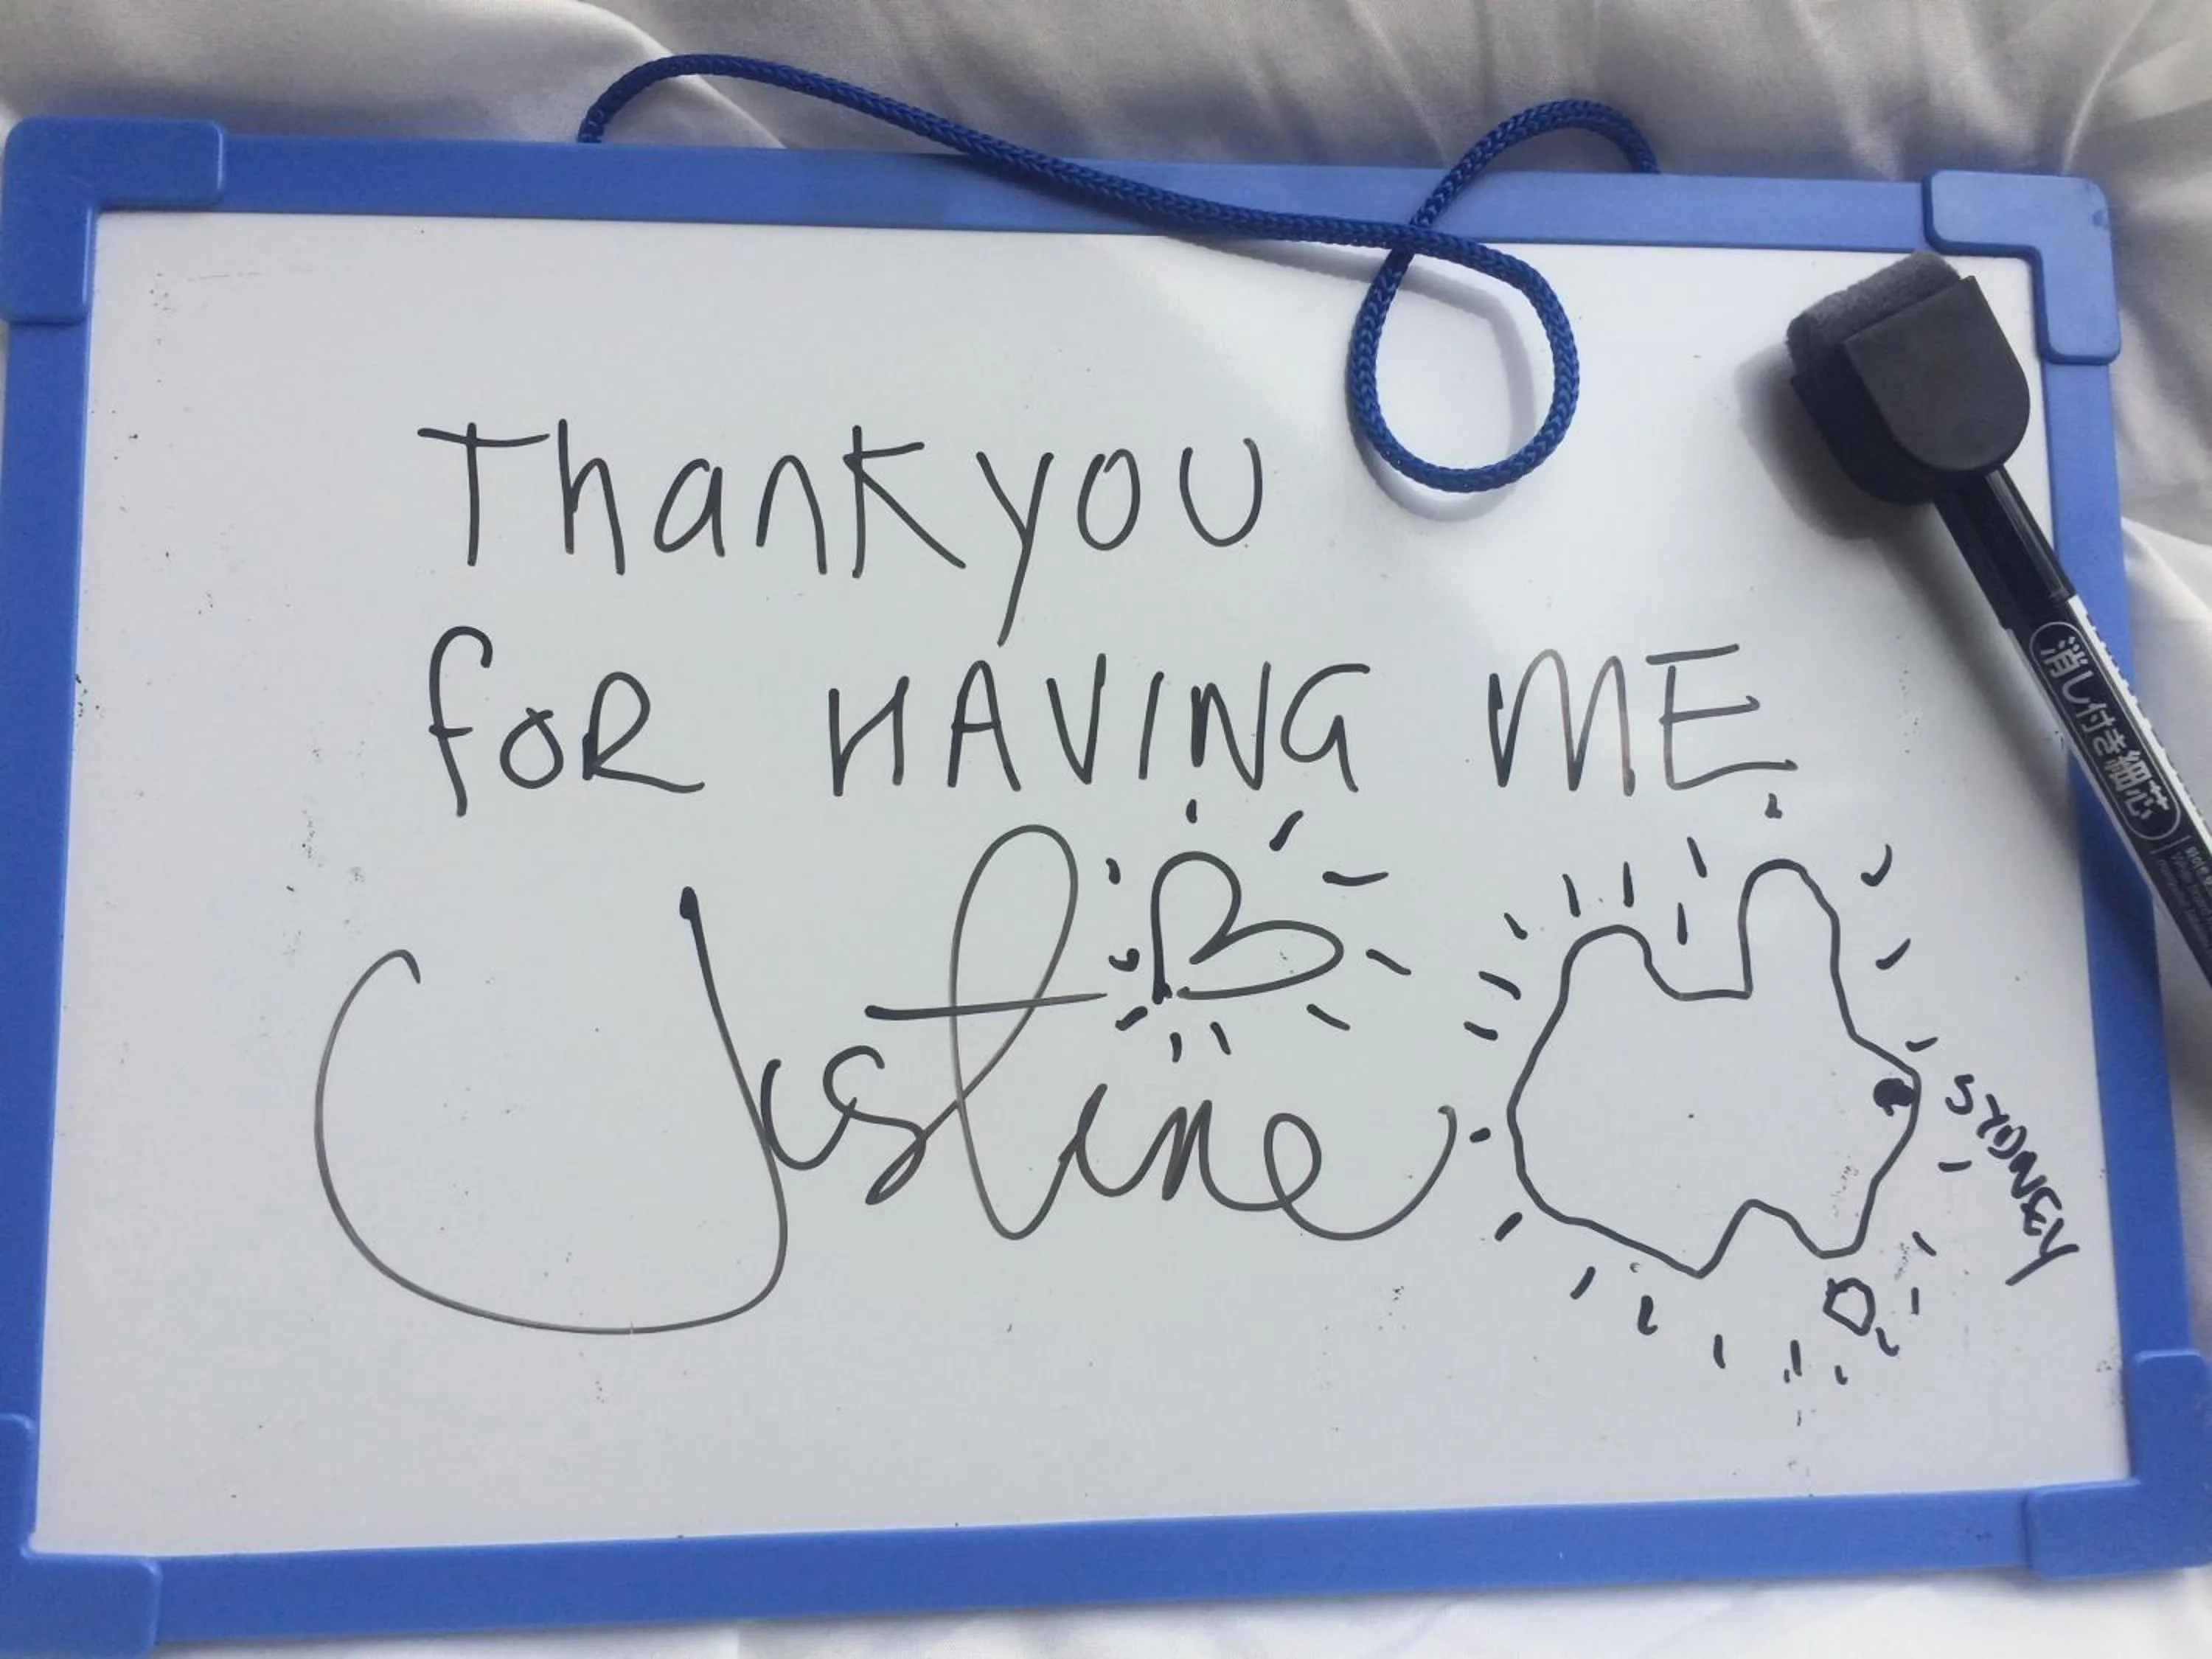 Thank you
foR HAVING ME
Justine
SYDNEY
消し付き細芯